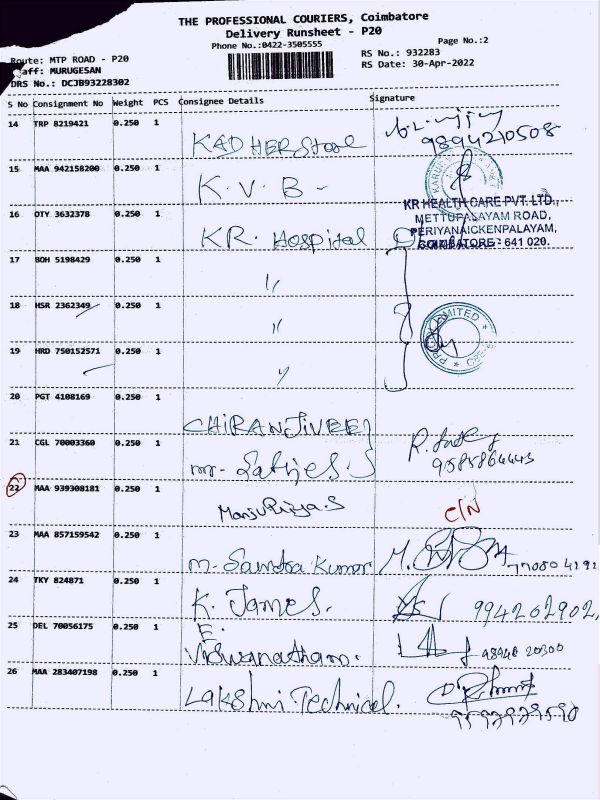 THE PROFESSIONAL COURIERS, Coimbatore
Delivery Runsheet - P20
Phone No.:0422-3505555
Page No.:2
Route: MTP ROAD - P20
RS No.: 932283
Staff: MURUGESAN
RS Date: 30-Apr-2022
DRS No.: DCJB93228302
S No Consignment No Weight PCS Consignee Details Signature
14 TRP 8219421 0.250 1
KADHERStore 9894210508
15 MAA 942158200 0.250 1
K.V.B-
KR HEALTH CARE PVT. LTD.,
METTUPALAYAM ROAD,
PERIYANAICKENPALAYAM,
COIMBATORE- 641 020.
16 OTY 3632378 0.250 1
KR. Hospital
17 BOH 5198429 0.250 1
"
18 HSR 2362349 0.250 1
"
19 HRD 750152571 0.250 1
"
20 PGT 4108169 0.250 1
CHIRANJIVEEJ
21 CGL 70003360 0.250 1
mr. S 9585864443
22 MAA 939308181 0.250 1
ManjuPriya.S C/N
23 MAA 857159542 0.250 1
m. Kumar
24 TKY 824871 0.250 1
K. James. 994262902,
25 DEL 70056175 0.250 1
E.
Viswanathan. 98948 20300
26 MAA 283407198 0.250 1
Lakshmi Technical.